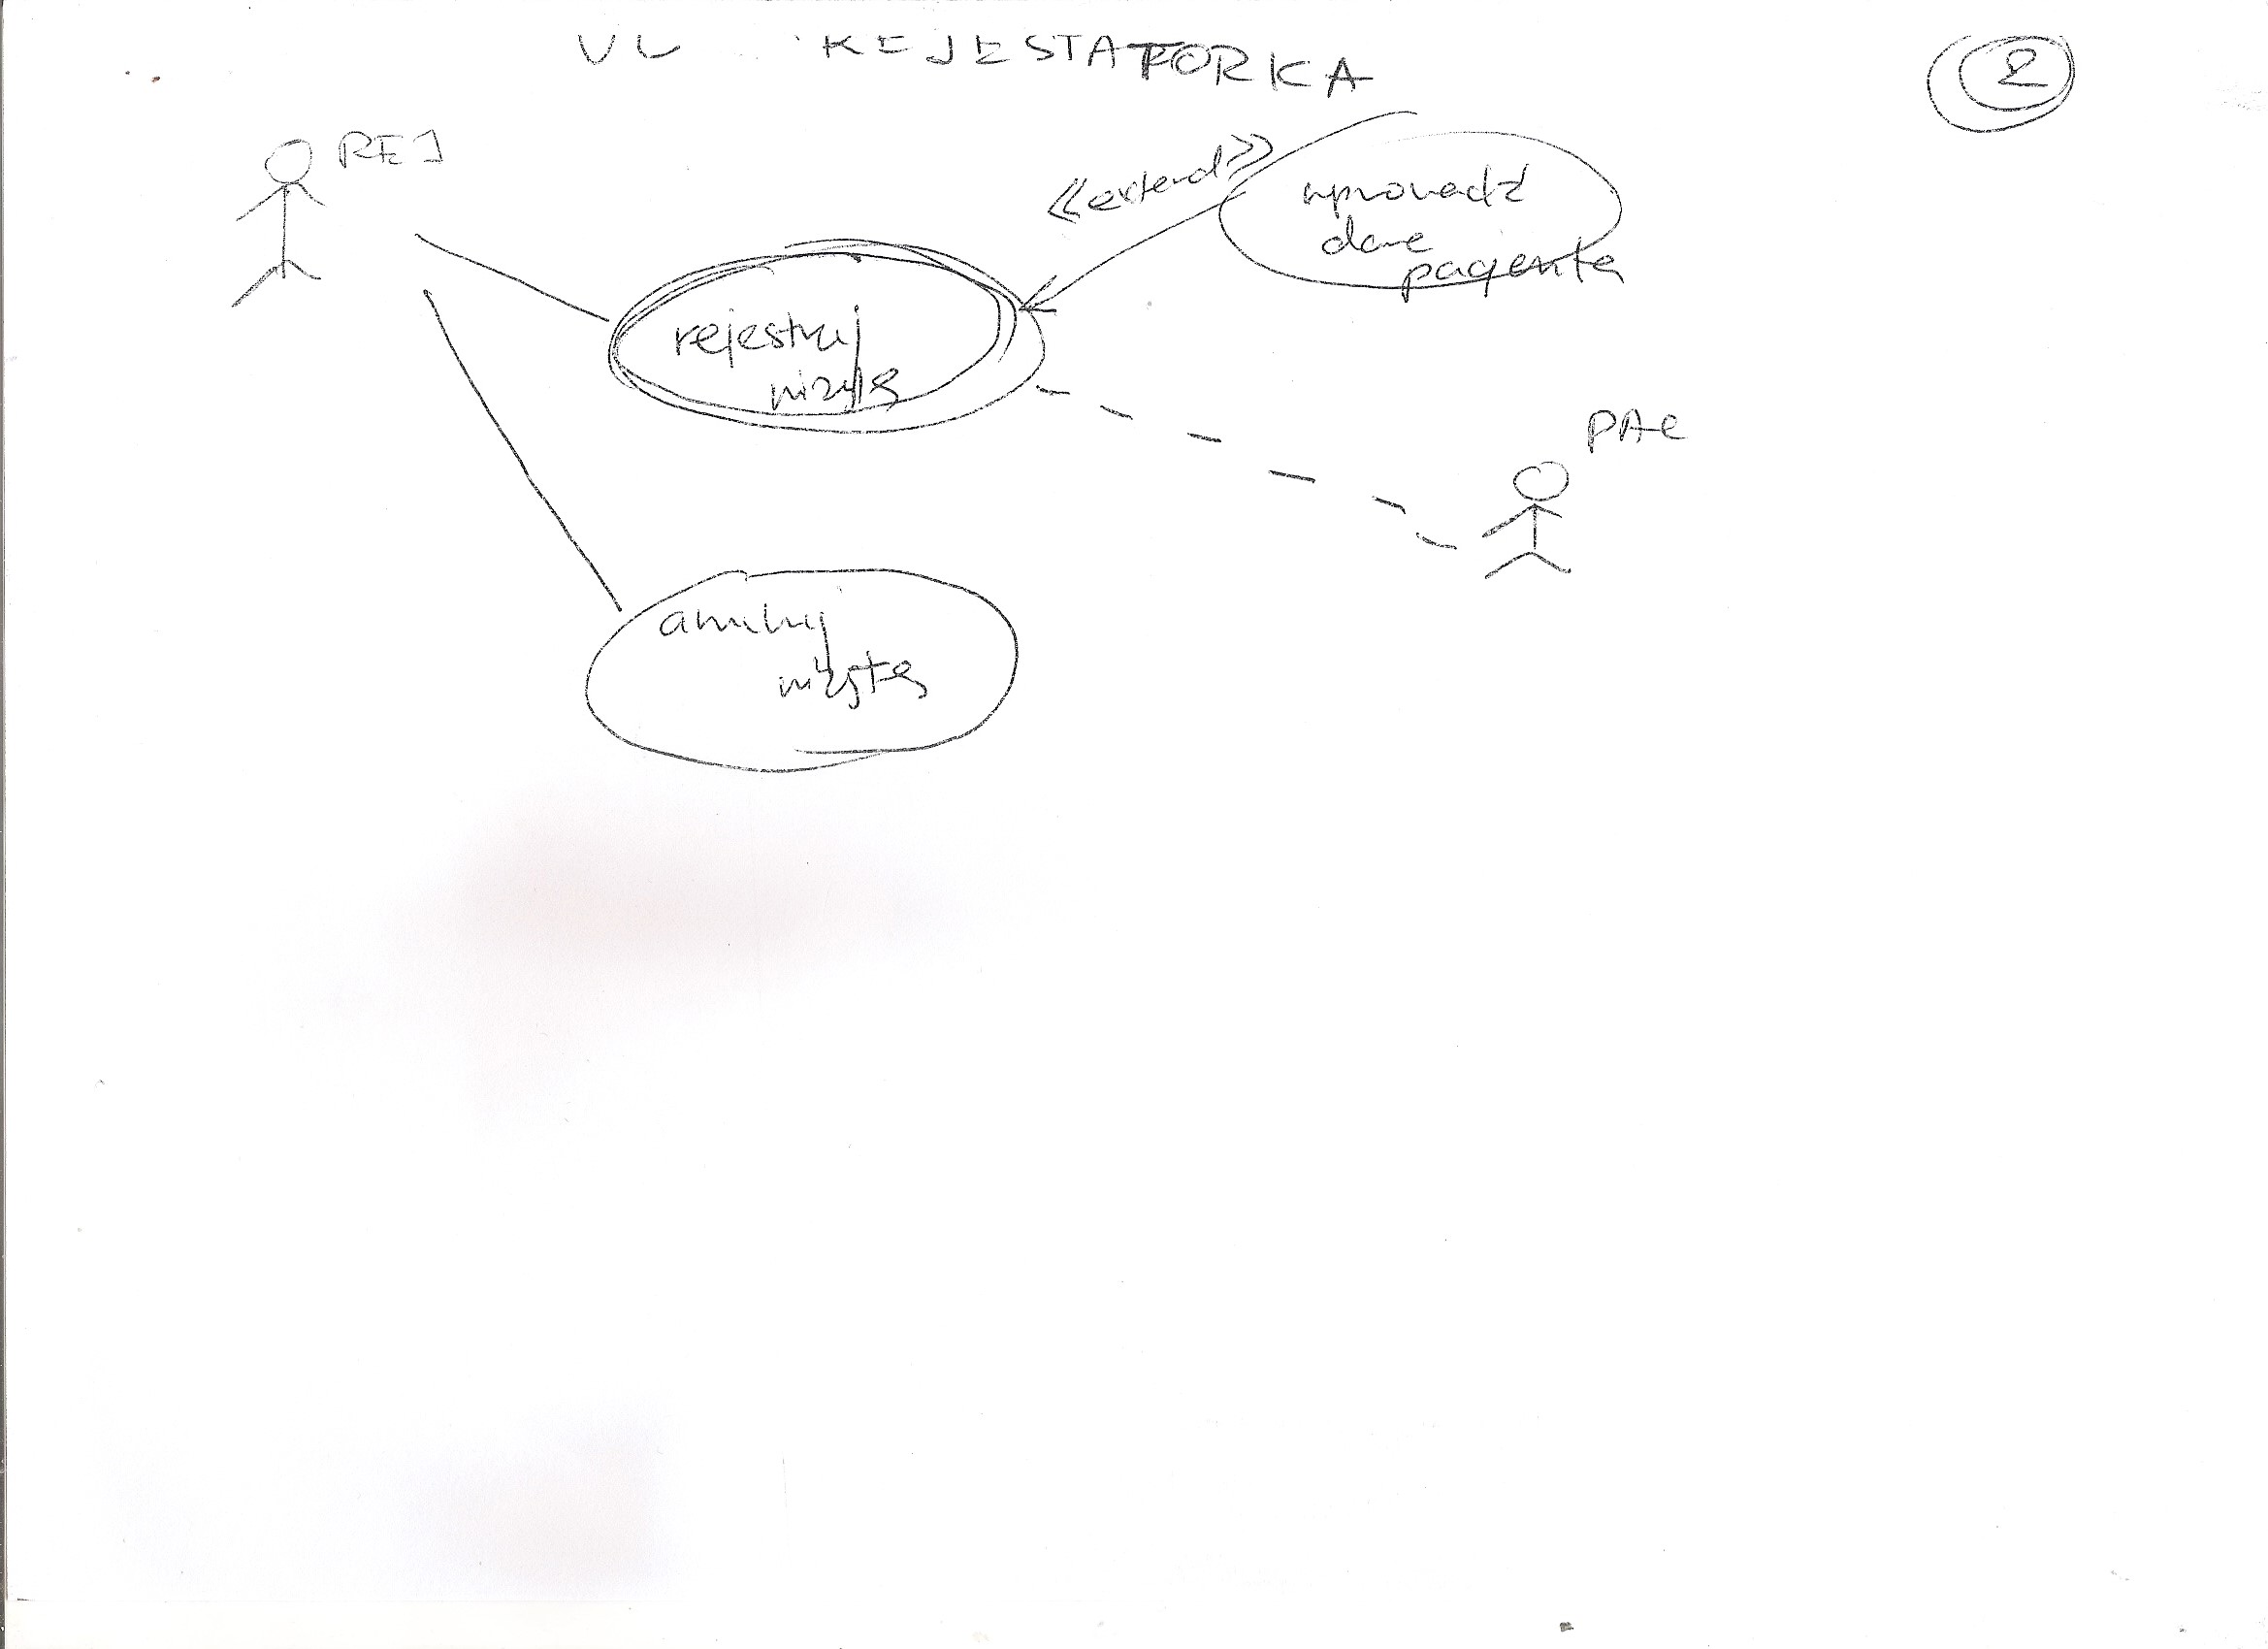 UC REJESTATORKA
2
REJ
<<extend>>
wprowadź
dane
pacjenta
rejestruj
wizytę
PAC
anuluj
wizytę